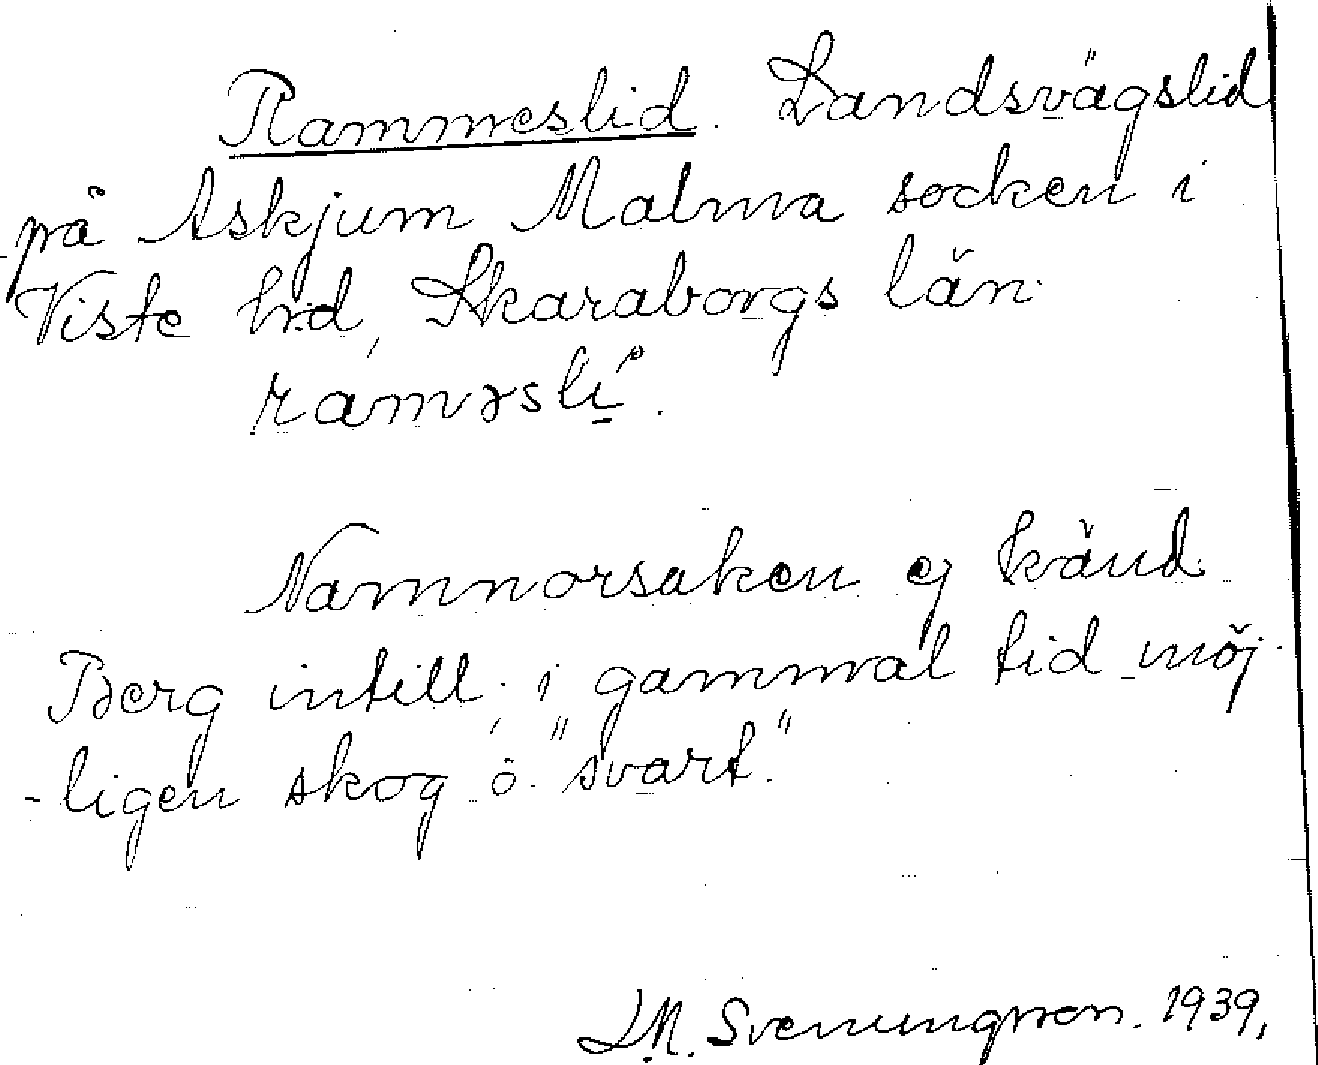 Rammeslid. Landsvägslid
på Askjum Malma socken i
Viste hrd, Skaraborgs län.
raməsli.
Namnorsaken ej känd.
Berg intill; i gammal tid möj-
-ligen skog o. "svart."
J.M. Svenungsson. 1939.